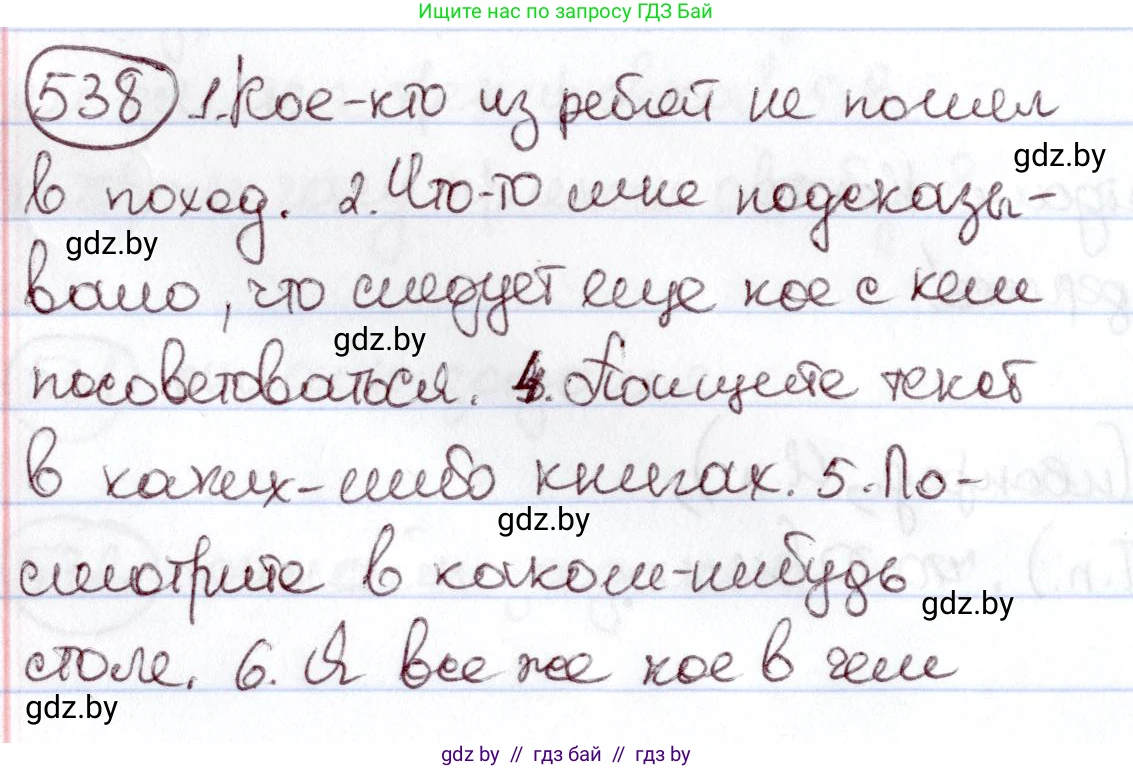 Ищите нас по запросу ГДЗ Бай
538 1. Кое-кто из ребят не пошел
gdz.by
в поход. 2. Что-то мне подсказы-
gdz.by
вало, что следует еще кое с кем
gdz.by
посоветоваться. 4. Поищите текст
в каких-либо книгах. 5. По-
gdz.by
смотрите в каком-нибудь
gdz.by
столе. 6. Я все же кое в чем
gdz.by
gdz.by // гдз бай // гдз by